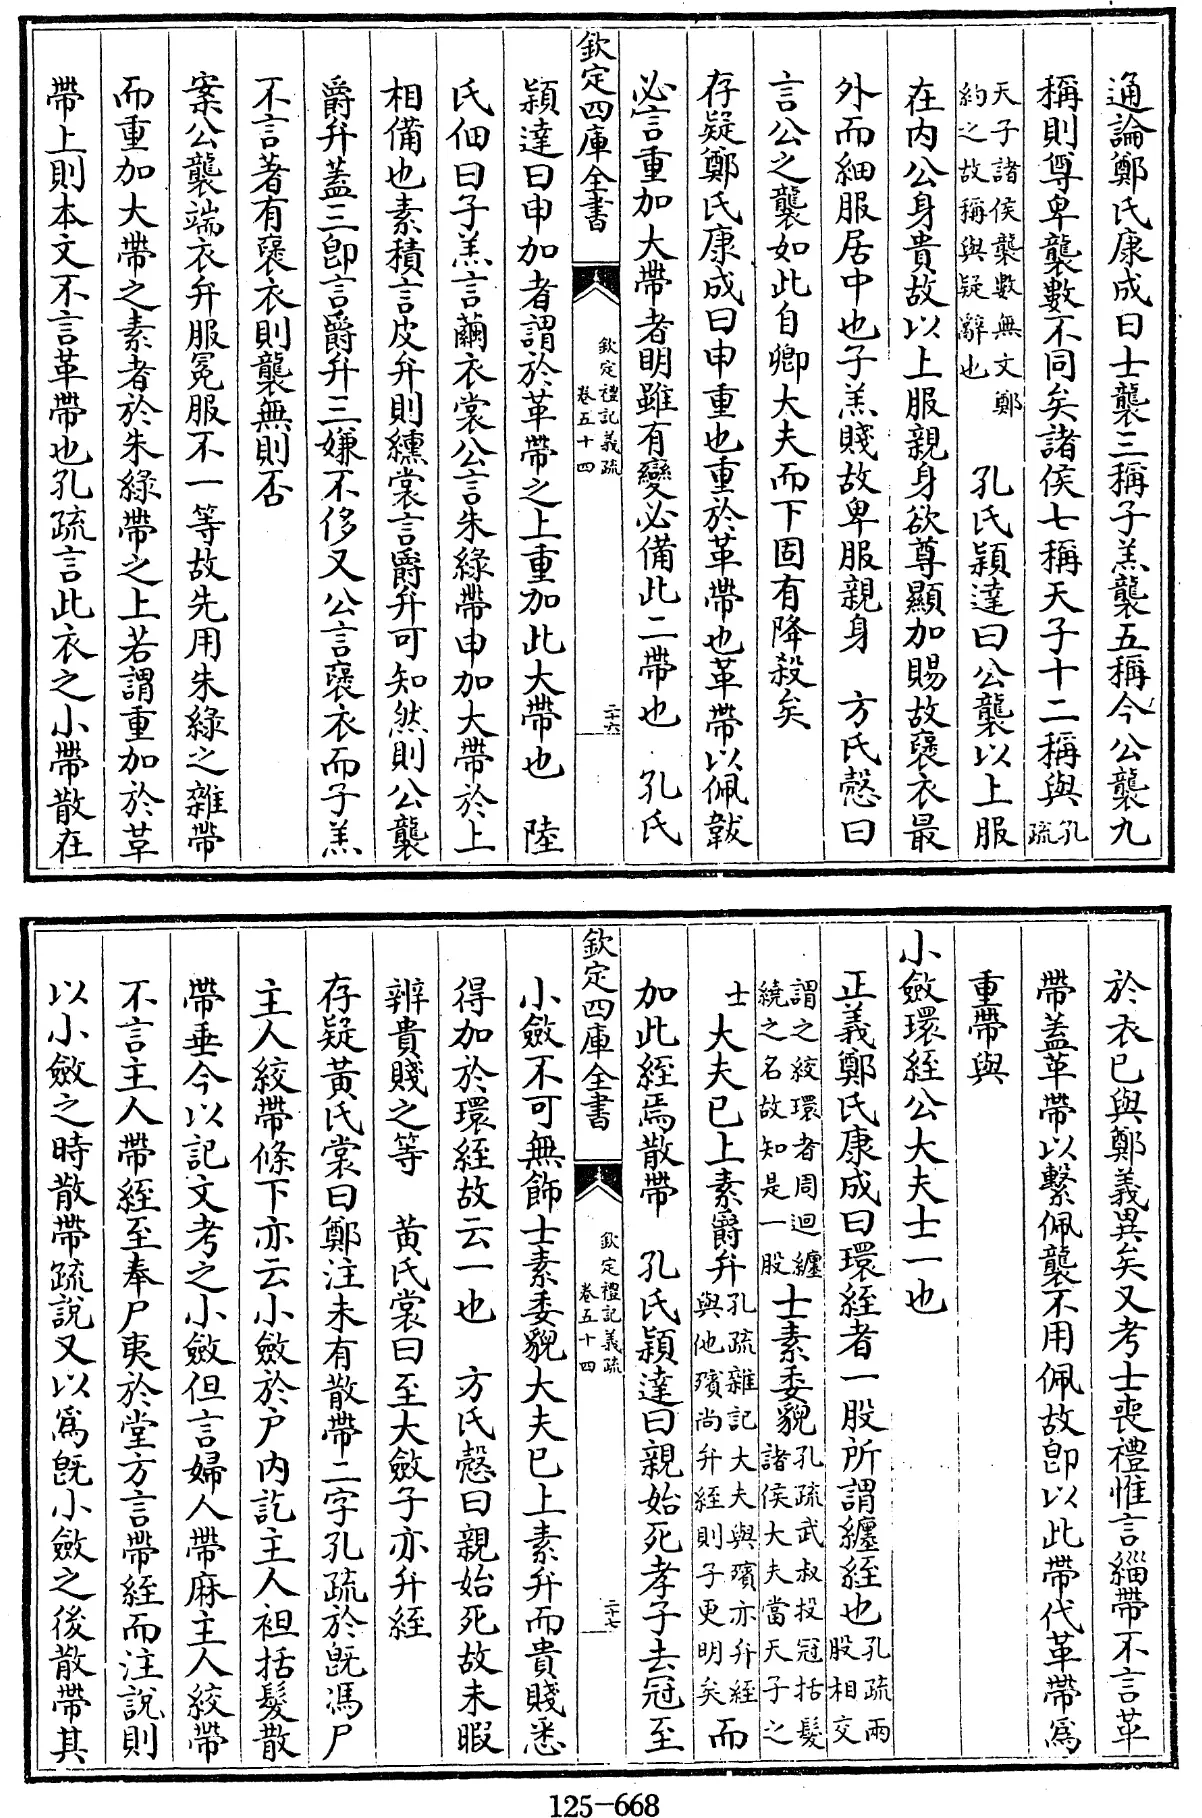 通論鄭氏康成曰士襲三稱子羔襲五稱今公襲九
稱則尊卑襲數不同矣諸侯七稱天子十二稱與孔疏
天子諸侯襲數無文鄭約之故稱與疑辭也 孔氏穎達曰公襲以上服
在内公身貴故以上服親身欲尊顯加賜故襃衣最
外而細服居中也子羔賤故卑服親身 方氏慤曰
言公之襲如此自卿大夫而下固有降殺矣
存疑鄭氏康成曰申重也重於革帶也革帶以佩韍
必言重加大帶者明雖有變必備此二帶也 孔氏
欽定四庫全書
欽定禮記義疏
卷五十四
二十六
穎達曰申加者謂於革帶之上重加此大帶也 陸
氏佃曰子羔言繭衣裳公言朱綠帶申加大帶於上
相備也素積言皮弁則纁裳言爵弁可知然則公襲
爵弁蓋三卽言爵弁三嫌不侈又公言襃衣而子羔
不言著有襃衣則襲無則否
案公襲端衣弁服冕服不一等故先用朱綠之雜帶
而重加大帶之素者於朱綠帶之上若謂重加於革
帶上則本文不言革帶也孔疏言此衣之小帶散在
於衣已與鄭義異矣又考士喪禮惟言緇帶不言革
帶蓋革帶以繫佩襲不用佩故卽以此帶代革帶爲
重帶與
小斂環絰公大夫士一也
正義鄭氏康成曰環絰者一股所謂纏絰也孔疏兩股相交
謂之絞環者周迴纏繞之名故知是一股 士素委貌孔疏武叔投冠括髮諸侯大夫當天子之
士 大夫已上素爵弁孔疏雜記大夫與殯亦弁絰與他殯尚弁絰則子更明矣而
加此絰焉散帶 孔氏穎達曰親始死孝子去冠至
欽定四庫全書
欽定禮記義疏
卷五十四
二十七
小斂不可無飾士素委貌大夫已上素弁而貴賤悉
得加於環絰故云一也 方氏慤曰親始死故未暇
辨貴賤之等 黄氏裳曰至大斂子亦弁絰
存疑黃氏裳曰鄭注未有散帶二字孔疏於旣馮尸
主人絞帶條下亦云小斂於户内訖主人袒括髮散
帶垂今以記文考之小斂但言婦人帶麻主人絞帶
不言主人帶絰至奉尸夷於堂方言帶絰而注說則
以小斂之時散帶疏說又以爲旣小斂之後散帶其
125-668